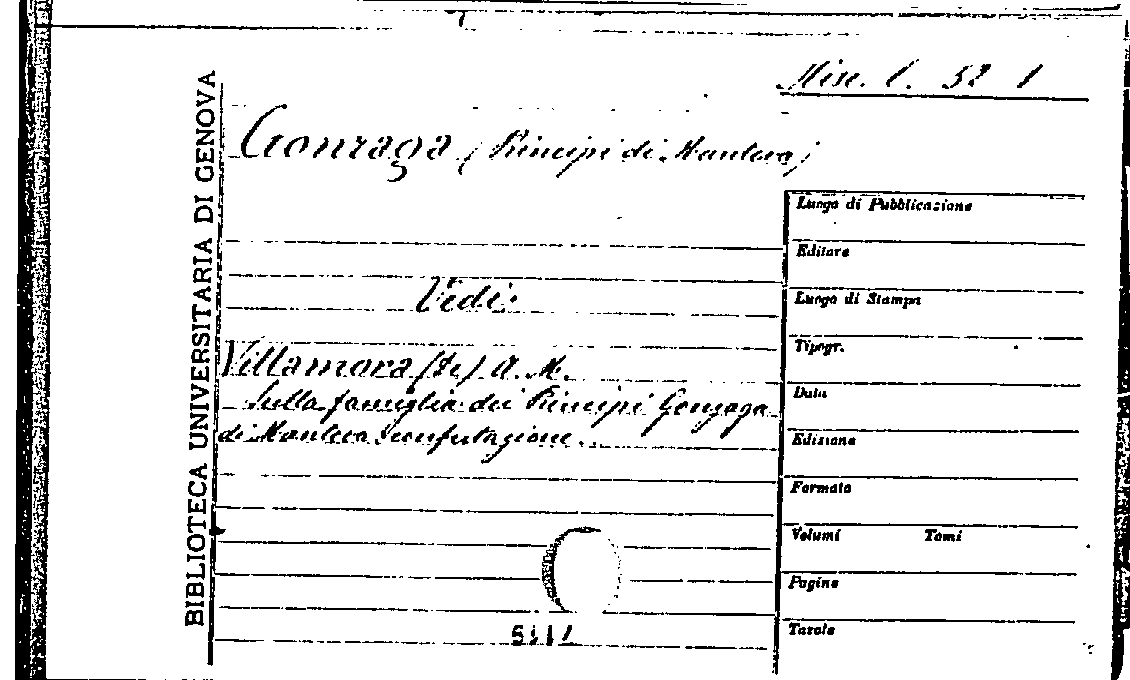 Misc. C. 52 1
Gonzaga (Principi di Mantova)
BIBLIOTECA UNIVERSITARIA DI GENOVA
Vedi:
Villamora (de) A. M.
Sulla famiglia dei Principi Gonzaga
di Mantova confutazione.
Luogo di Pubblicazione
Editore
Luogo di Stampa
Tipogr.
Data
Edizione
Formato
Volumi Tomi
Pagine
Tavole